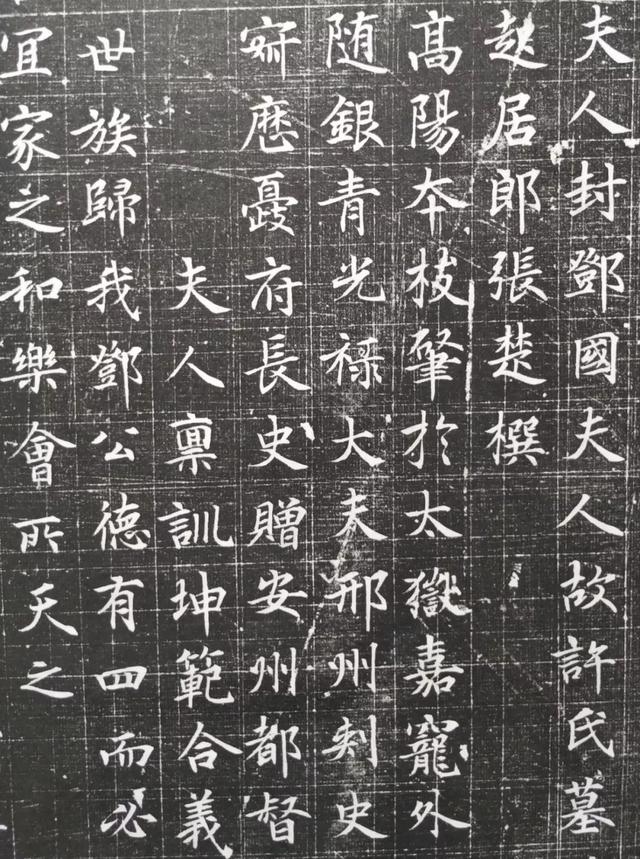 夫人封鄧國夫人故許氏墓
起居郎張楚撰
髙陽夲枝肇於太嶽嘉寵外
随銀青光禄大夫邢州刾史
厯夔府長史贈安州都督
夫人稟訓坤範合義
世族歸我鄧公德有四而必
宜家之和樂會所天之